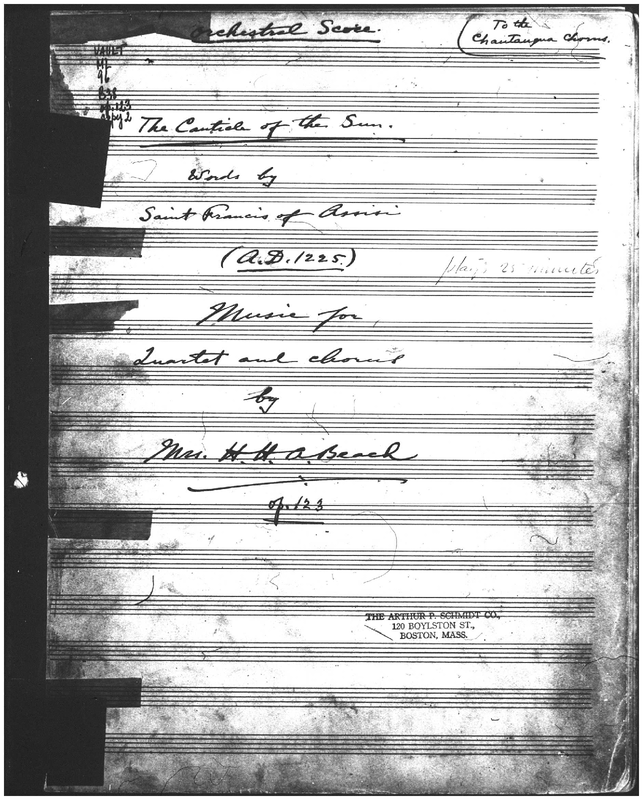 Orchestral Score.
To the
Chautauqua Chorus.
VAULT
ML
96
B38
op.123
copy 2
The Canticle of the Sun.
Words by
Saint Francis of Assisi
(A.D. 1225)
plays minutes
Music for
Quartet and chorus
by
Mrs. H. H. A. Beach
op. 123
THE ARTHUR P. SCHMIDT CO.,
120 BOYLSTON ST.,
BOSTON, MASS.